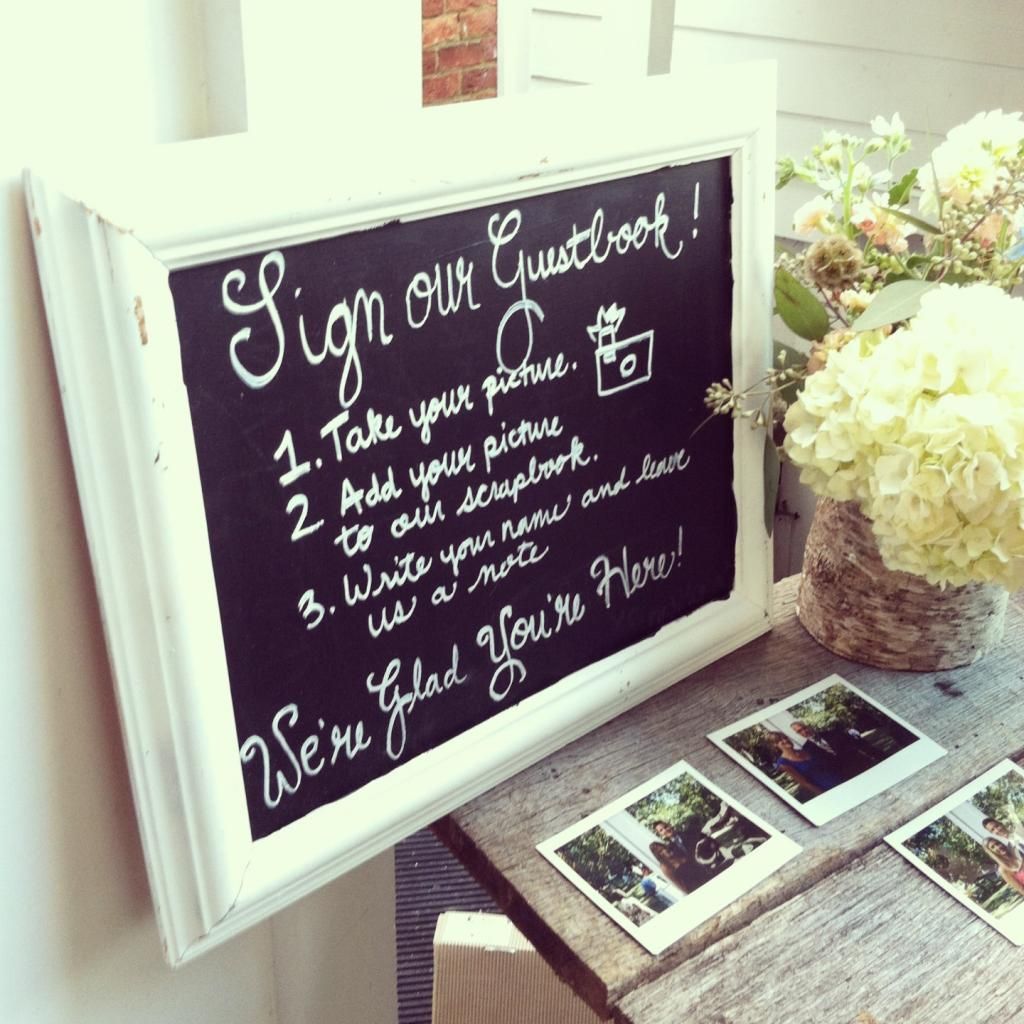 Sign our Guestbook!
1. Take your picture.
2. Add your picture
to our scrapbook.
3. Write your name and leave
us a note
We're Glad You're Here!